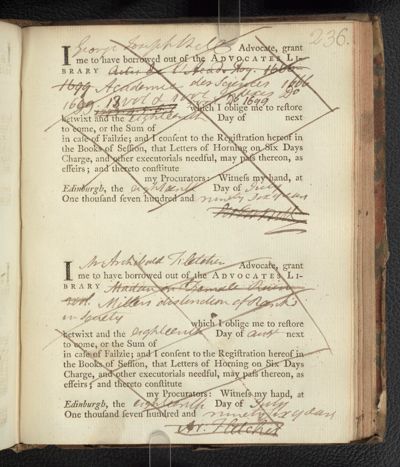 236.
I George Joseph Bell Advocate, grant
me to have borrowed out of the ADVOCATES LI-
BRARY
1699 Academie des Sciences 1666
1699
which I oblige me to restore
betwixt and the eighteenth Day of next
to come, or the Sum of
in case of Failzie; and I consent to the Registration hereof in
the Books of Session, that Letters of Horning on Six Days
Charge, and other executorials needful, may pass thereon, as
effeirs; and thereto constitute
my Procurators: Witness my hand, at
Edinburgh, the eighteenth Day of July
One thousand seven hundred and ninety six years
I Mr Archibald Fletcher Advocate, grant
me to have borrowed out of the ADVOCATES LI-
BRARY Madan on Female Ruin
vol. Millers distinction of Ranks
in society
which I oblige me to restore
betwixt and the eighteenth Day of augt next
to come, or the Sum of
in case of Failzie; and I consent to the Registration hereof in
the Books of Session, that Letters of Horning on Six Days
Charge, and other executorials needful, may pass thereon, as
effeirs; and thereto constitute
my Procurators: Witness my hand, at
Edinburgh, the eighteenth Day of July
One thousand seven hundred and ninety six years
Ar. Fletcher